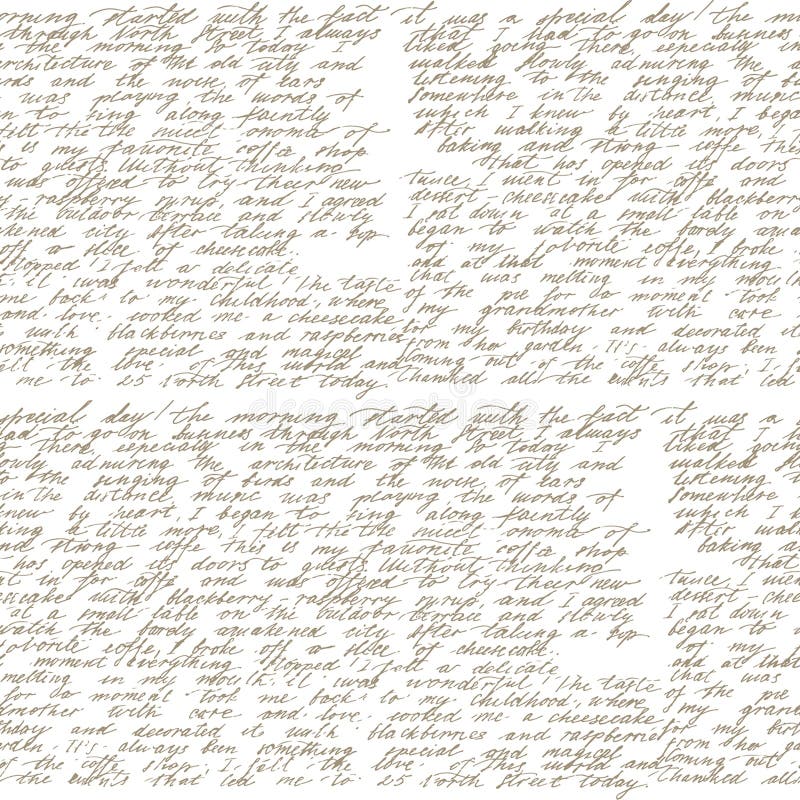 orning started with the fact it was a special day! the mo
through North Street. I always that I had to go on business
the morning. So today I liked going there, especially in
architecture of the old city and walked slowly admiring the a
rds and the noise of cars listening to the singing of bi
was playing, the words of somewhere in the distance music
n to sing along faintly which I knew by heart, I began
felt the the sweet onoma of After walking a little more, I
s my favorite coffe shop baking and strong coffe th
to guests. Without thinking that has opened its doors
was offered to try their new twice, I went in for coffe and
- raspberry syrup, and I agreed dessert - cheesecake with blackberry
the outdoor terrace and slowly I sat down at a small table on
akened city. After taking a sip began to watch the bardy awa
off a slice of cheesecake.. of my favorite coffe, I broke
stopped! I felt a delicate and at that moment everything
t. it was wonderful! The taste that was melting in my mouth
me back to my childhood, where of the pie for a moment took
and love cooked me a cheesecake my grandmother with care
t with blackberries and raspberries for my birthday and decorated it
something special and magical from her garden. It's always been
felt the love of this world and coming out of the coffe shop. I
me to 25 North Street today. thanked all the events that led
special day! the morning started with the fact it was a
had to go on business through North Street. I always that I had
there, especially in the morning. So today I liked going
slowly admiring the architecture of the old city and walked slo
to the singing of birds and the noise of cars listening
in the distance music was playing, the words of somewhere
knew by heart, I began to sing along faintly which I
king a little more, I felt the the sweet onoma of After walk
and strong coffe this is my favorite coffe shop baking a
has opened its doors to guests. Without thinking that
nt in for coffe and was offered to try their new twice, I wen
esecake with blackberry - raspberry syrup, and I agreed dessert - chees
at a small table on the outdoor terrace and slowly I sat down
watch the bardy awakened city. After taking a sip began to
favorite coffe, I broke off a slice of cheesecake.. of my
moment everything stopped! I felt a delicate and at that
melting in my mouth. it was wonderful! The taste that was
for a moment took me back to my childhood, where of the pie
dmother with care and love cooked me a cheesecake my grand
thday and decorated it with blackberries and raspberries for my birt
arden. It's always been something special and magical from her
of the coffe shop. I felt the love of this world and coming out
the events that led me to 25 North Street today. thanked all